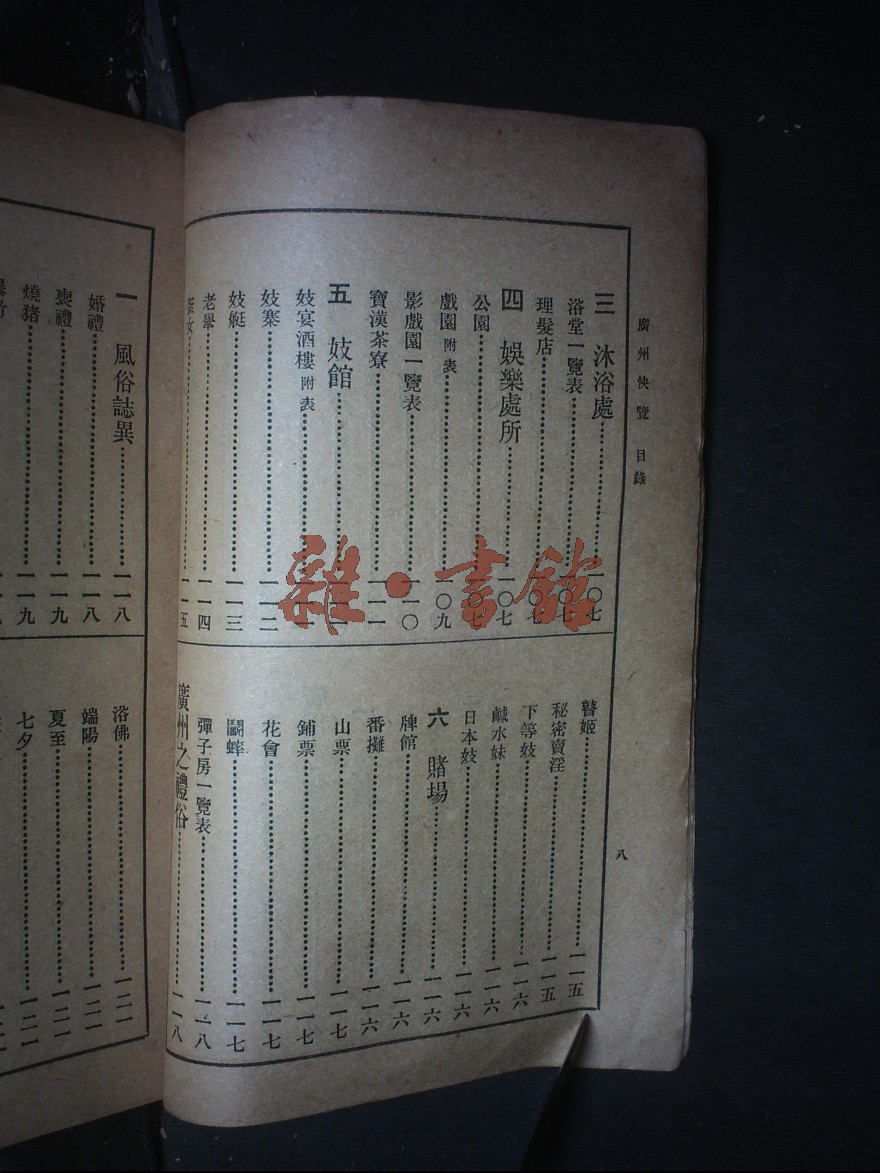 廣州快覽 目錄
八
三 沐浴處 一〇七
浴堂一覽表 一〇七
理髮店 一〇七
四 娛樂處所 一〇七
公園 一〇七
戲園附表 一〇九
影戲園一覽表 一一〇
寶漢茶寮 一一一
五 妓館
妓宴酒樓附表
妓寨 一一二
妓艇 一一三
老舉 一一四
蜑女 一一五
瞽姬 一一五
秘密賣淫 一一五
下等妓 一一六
鹹水妹 一一六
日本妓 一一六
六 賭場 一一六
牌館 一一六
番攤 一一六
山票 一一七
鋪票 一一七
花會 一一七
鬬蟀 一一七
彈子房一覽表 一一八
廣州之禮俗 一一八
一 風俗誌異 一一八
婚禮 一一八
喪禮 一一九
燒猪 一一九
浴佛 一二一
端陽 一二一
夏至 一二一
七夕 一二一
雜·書館